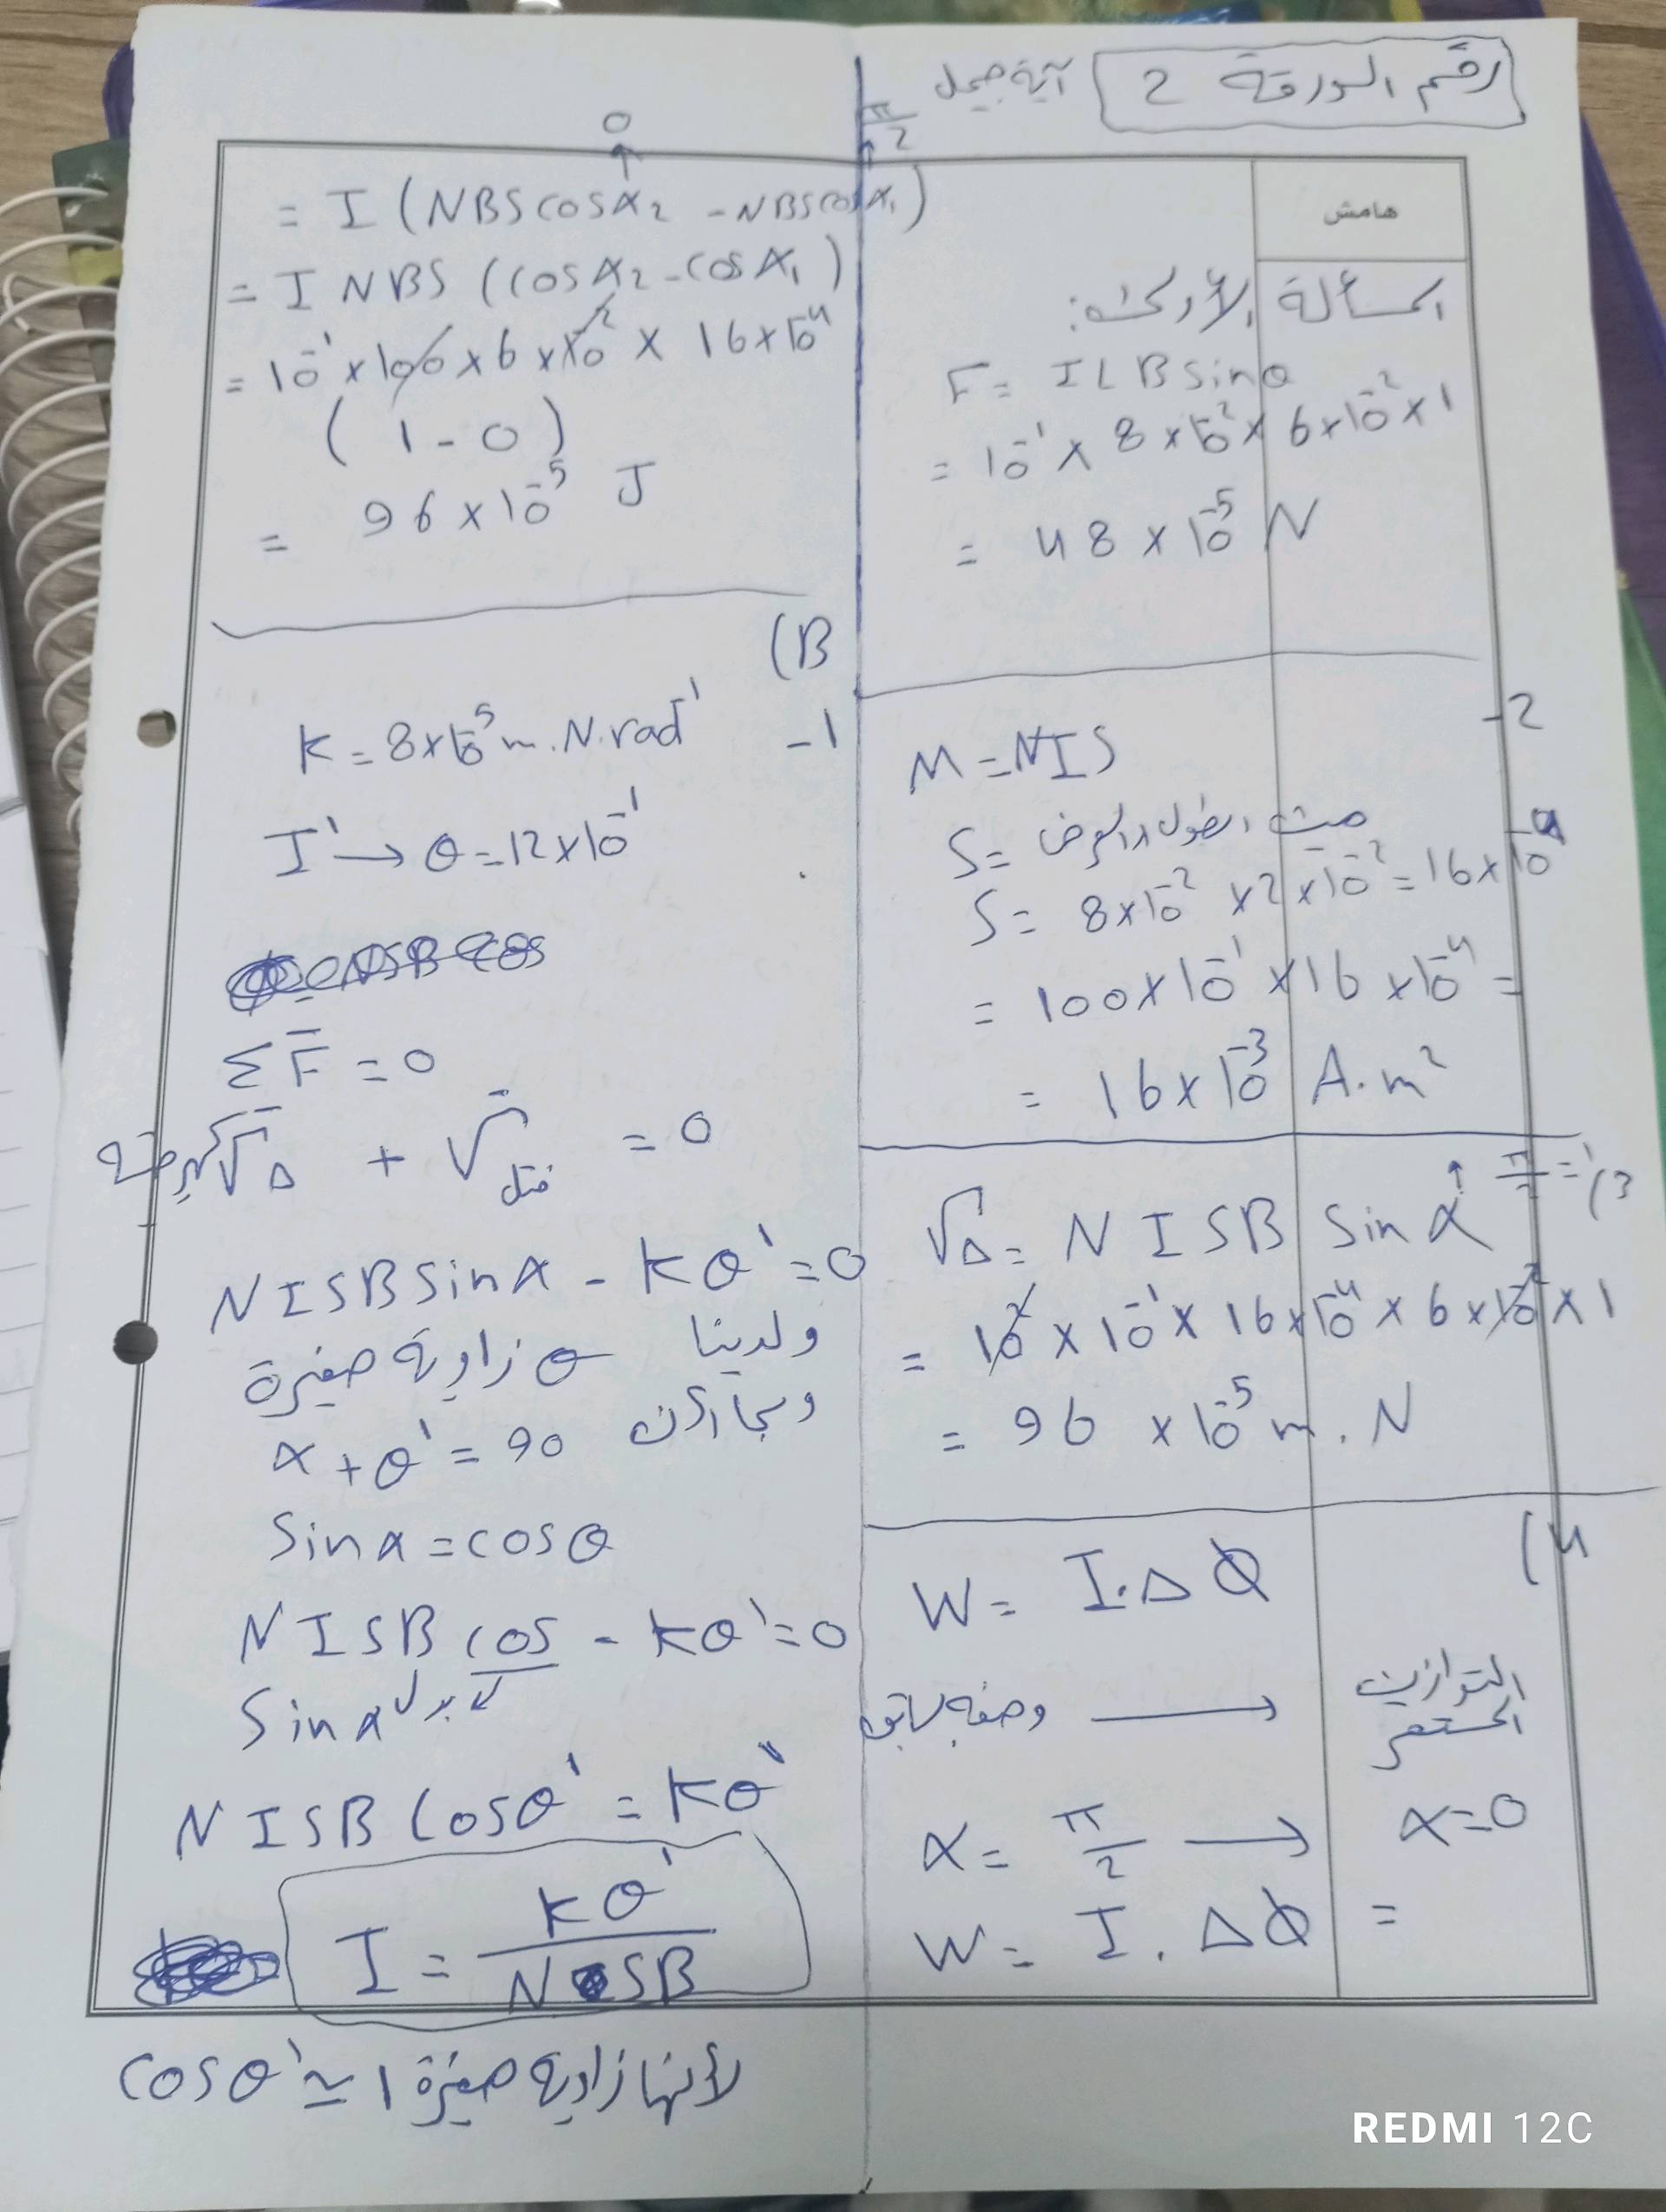 رقم الورقة 2
آية جميل
هامش
المسألة الأولى:
F = I L B sin θ
= 10⁻¹ × 8 × 10⁻² × 6 × 10⁻² × 1
= 48 × 10⁻⁵ N
-2
M = NIS
S = حيث الطول × العرض
S = 8×10⁻² × 2×10⁻² = 16×10⁻⁴
= 100 × 10⁻¹ × 16 × 10⁻⁴ =
= 16 × 10⁻³ A.m²
3)
Γ∆ = N I S B Sin α → π/2 =
= 10² × 10⁻¹ × 16×10⁻⁴ × 6×10⁻² × 1
= 96 × 10⁻⁵ m.N
4)
W = I.∆Φ
وضعه سابق → التوازن المستقر
α = π/2 → α = 0
W = I.∆Φ =
0 π/2
= I (NBS cos α₂ - NBS cos α₁)
= I NBS (cos α₂ - cos α₁)
= 10⁻¹ × 100 × 6 × 10⁻² × 16×10⁻⁴
(1 - 0)
= 96 × 10⁻⁵ J
(B
-1
K = 8×10⁻⁵ m.N.rad⁻¹
I' → θ = 12×10⁻¹
Σ F̄ = 0
Γ̄∆ كهرطيسية + Γ̄ فتل = 0
NISB sin α - Kθ' = 0
ولدينا θ زاوية صغيرة
وبما أن α + θ' = 90
Sin α = cos θ
NISB cos - Kθ' = 0
بدل Sin α
NISB Cos θ' = Kθ'
I = Kθ' / NSB
لأنها زاوية صغيرة cos θ' ≃ 1
REDMI 12C